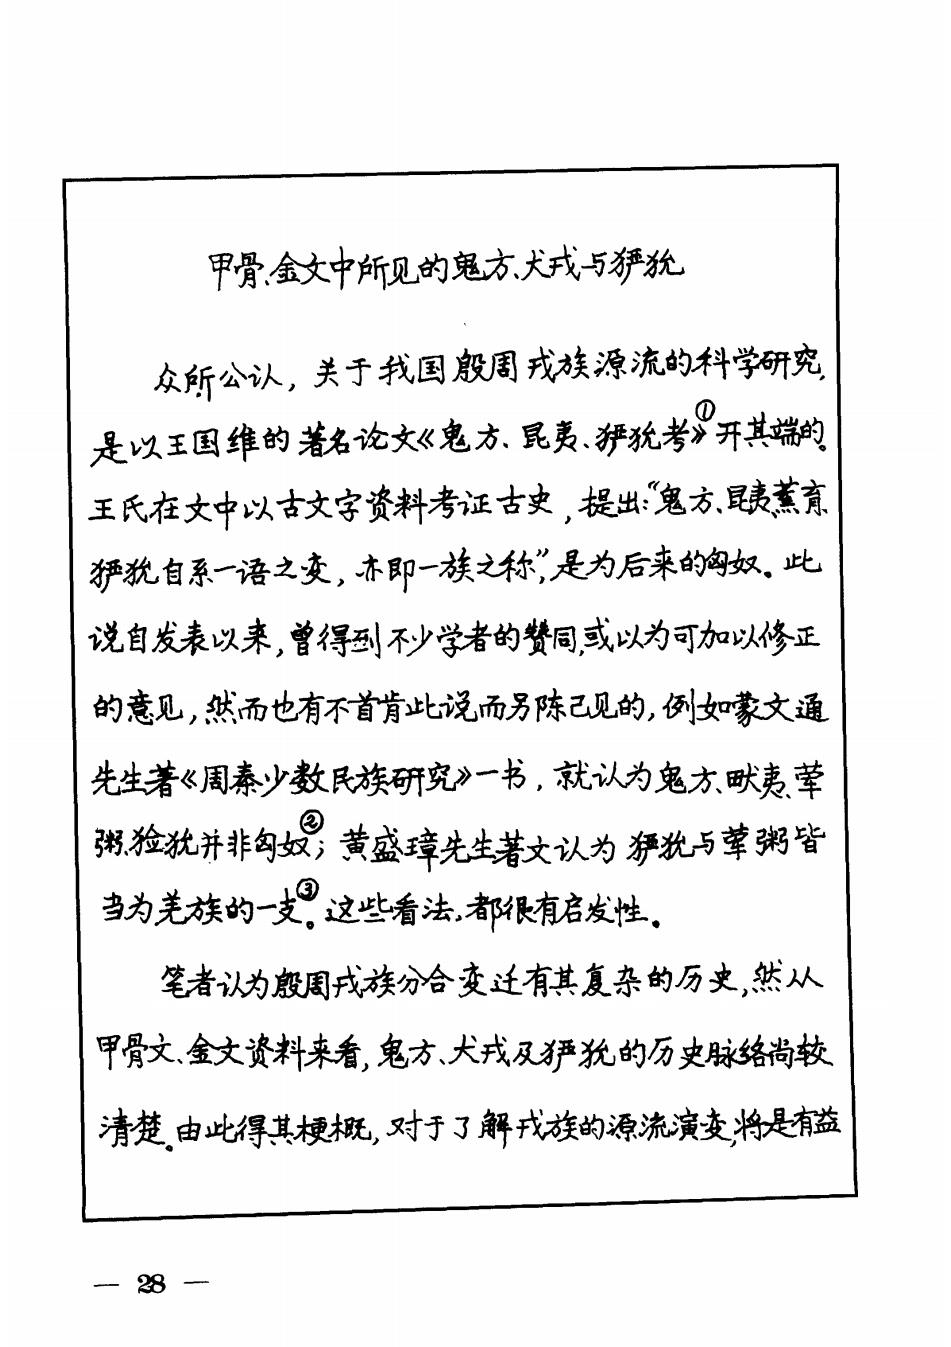 甲骨、金文中所见的鬼方、犬戎与𤞤狁
众所公认，关于我国殷周戎族源流的科学研究，
是以王国维的著名论文《鬼方、昆夷、𤞤狁考》①开其端的。
王氏在文中以古文字资料考证古史，提出：“鬼方、昆夷、薰育、
𤞤狁自系一语之变，亦即一族之称”，是为后来的匈奴。此
说自发表以来，曾得到不少学者的赞同，或以为可加以修正
的意见，然而也有不首肯此说而另陈己见的，例如蒙文通
先生著《周秦少数民族研究》一书，就认为鬼方、畎夷、荤
粥、猃狁并非匈奴②；黄盛璋先生著文认为𤞤狁与荤粥皆
当为羌族的一支③。这些看法，都很有启发性。
笔者认为殷周戎族分合变迁有其复杂的历史，然从
甲骨文、金文资料来看，鬼方、犬戎及𤞤狁的历史脉络尚较
清楚。由此得其梗概，对于了解戎族的源流演变，将是有益
— 28 —